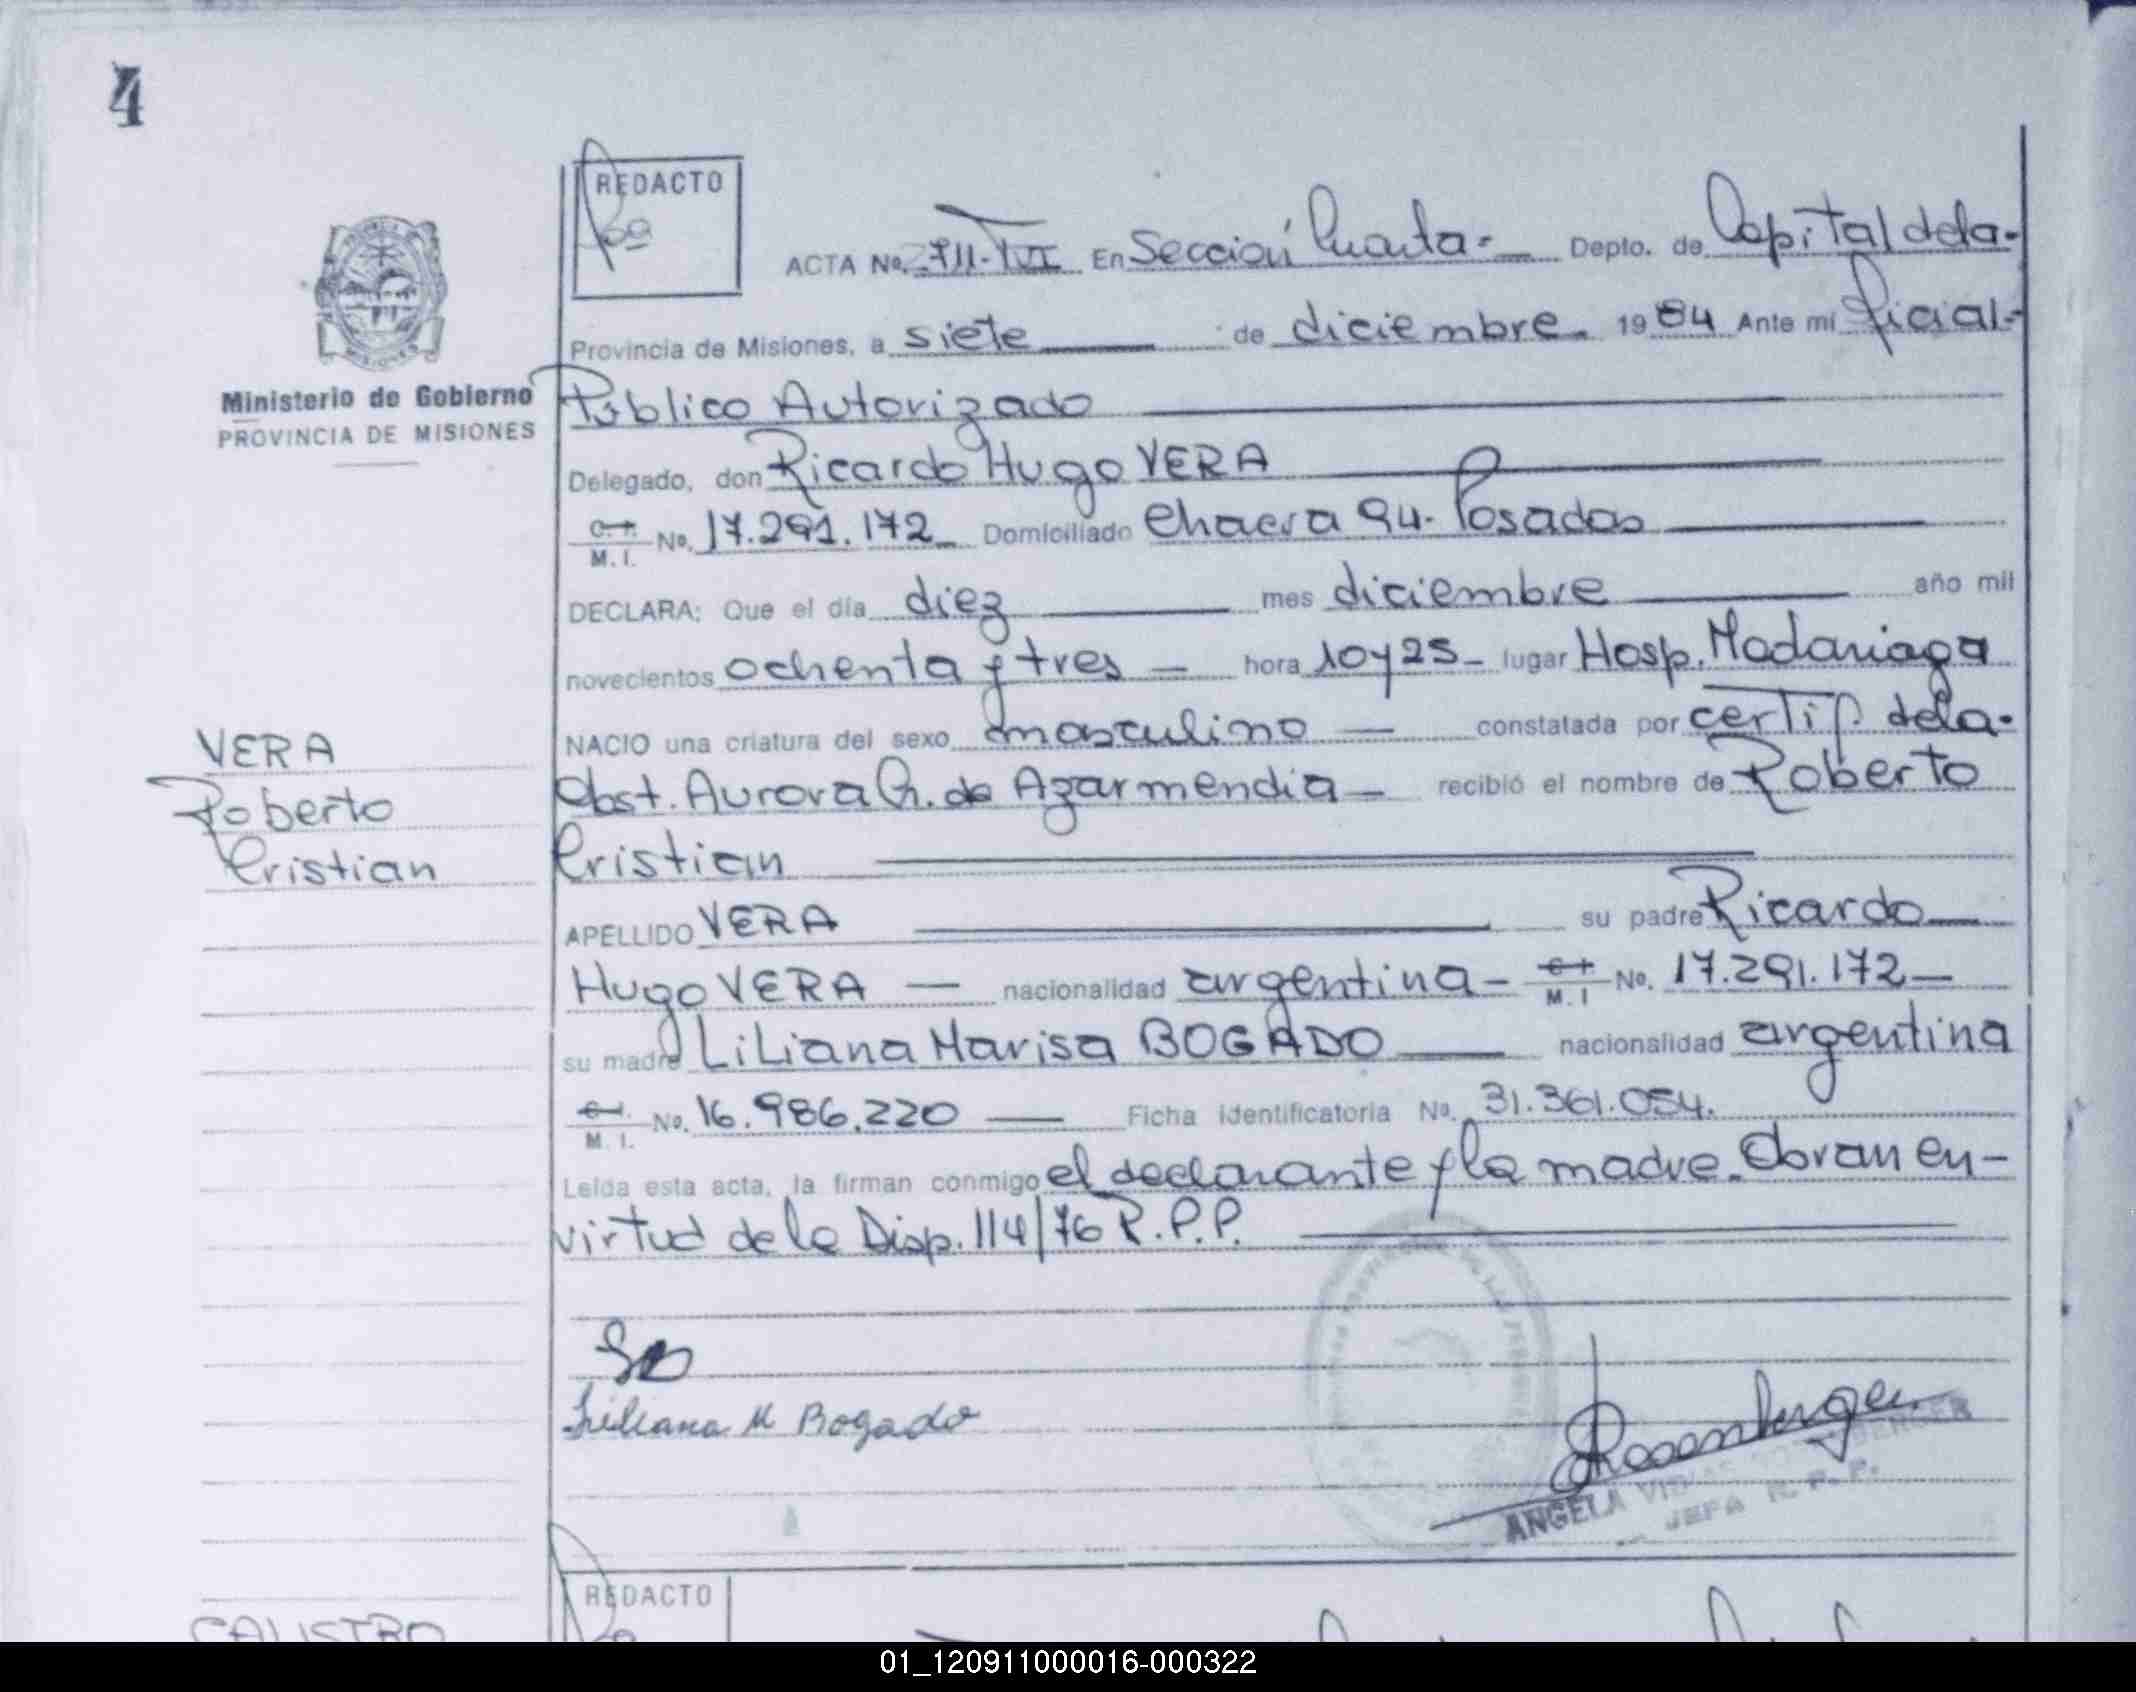 4
REDACTO
ACTA No. 2711-TVI En Sección Cuarta- Depto. de Capital dela-
Provincia de Misiones, a siete de diciembre. 1984 Ante mí Oficial-
Ministerio de Gobierno
PROVINCIA DE MISIONES
Público Autorizado
Delegado, don Ricardo Hugo VERA
C.I. M.I. No. 17.291.172 Domiciliado Chacra 94. Posadas
DECLARA: Que el día diez mes diciembre año mil
novecientos ochenta y tres hora 10y25 lugar Hosp. Madariaga
NACIO una criatura del sexo masculino constatada por certif. dela-
Obst. Aurora G. de Azarmendia recibió el nombre de Roberto
Cristian
VERA
Roberto
Cristian
APELLIDO VERA su padre Ricardo
Hugo VERA nacionalidad argentina C.I. M.I No. 17.291.172
su madre LiLiana Marisa BOGADO nacionalidad argentina
C.I. M.I. No. 16.986.220 Ficha identificatoria No. 31.361.054.
Leída esta acta, la firman conmigo el declarante y la madre. Obran en-
virtud de la Disp. 114/76 R.P.P.
Liliana M Bogado
Rosenberger
ANGELA
JEFA R.P.P.
REDACTO
01_120911000016-000322